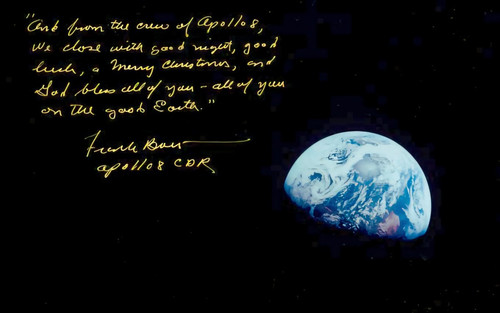 "And from the crew of Apollo 8,
We close with good night, good
luck, a Merry Christmas, and
God bless all of you - all of you
on the good Earth."
Frank Borman
Apollo 8 CDR